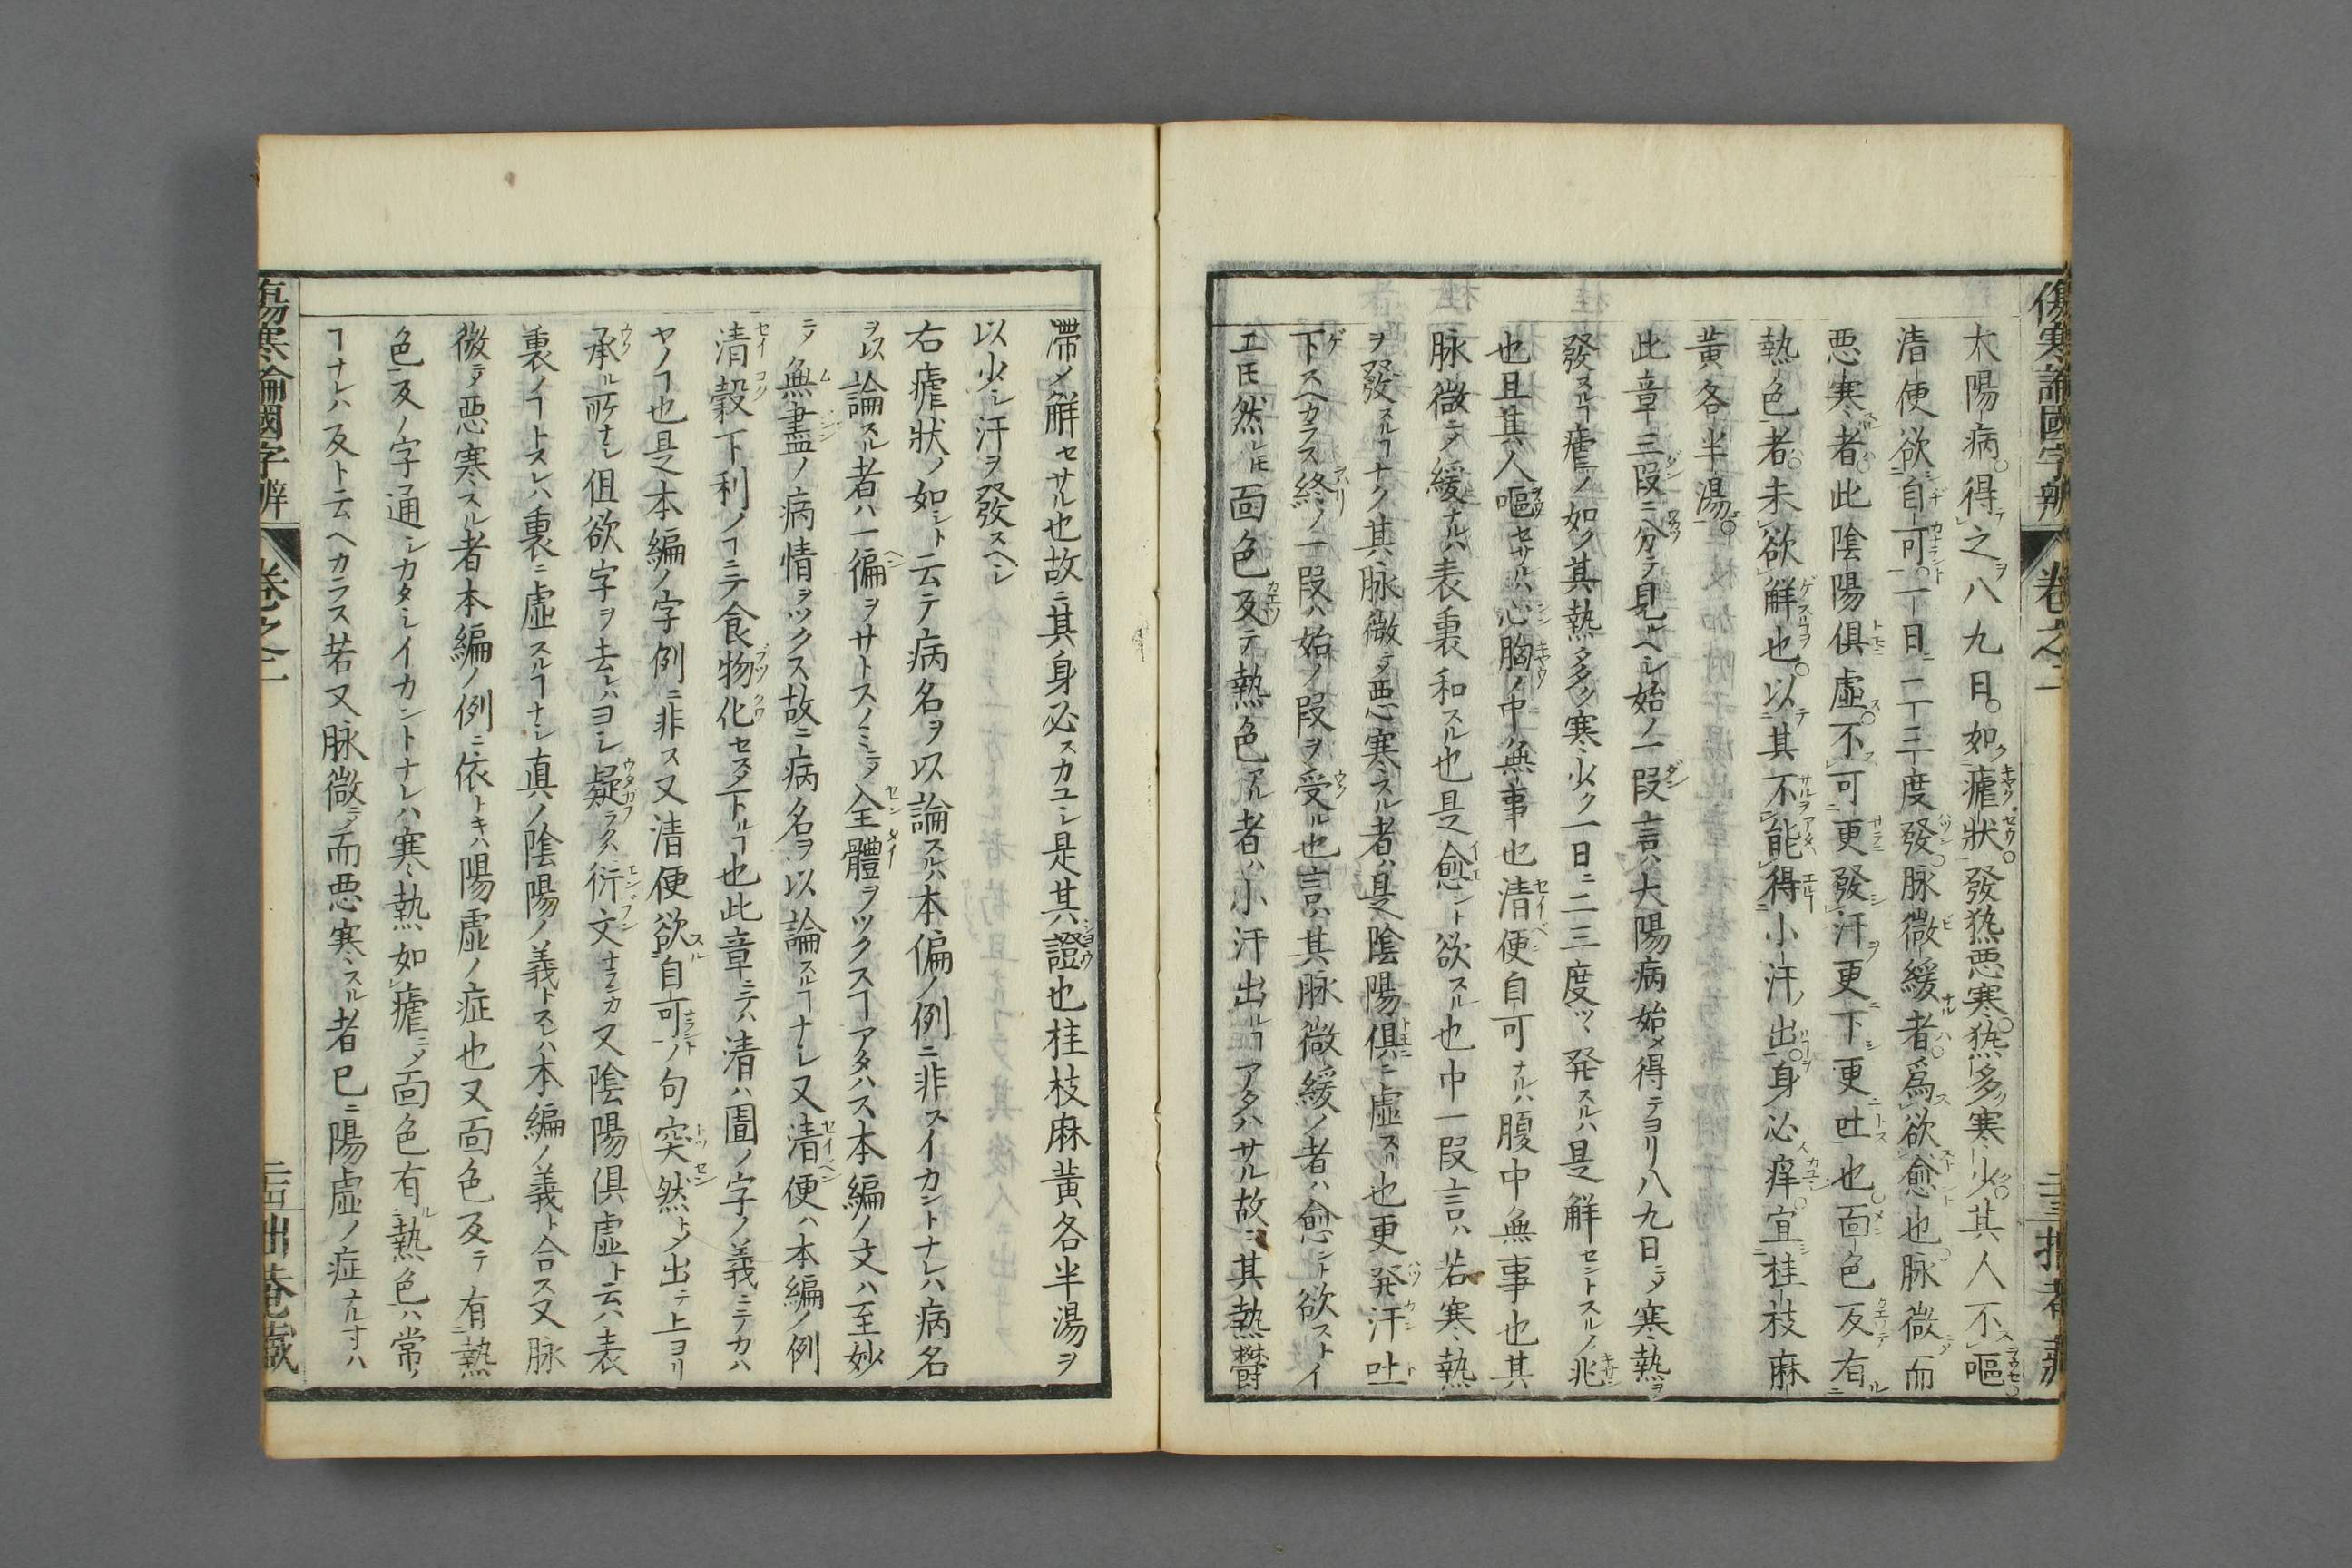 傷寒論國字辨 卷之二
太陽病得之八九日如瘧狀發熱惡寒熱多寒少其人不嘔
清便欲自可一日二三度發脈微緩者爲欲愈也脈微而
惡寒者此陰陽俱虛不可更發汗更下更吐也面色反有
熱色者未欲解也以其不能得小汗出身必痒宜桂枝麻
黃各半湯
此章三段ニ分テ見ルヘシ始ノ一段言ハ太陽病始メ得テヨリ八九日ニメ寒熱ヲ
發スルヿ瘧ノ如ク其熱多ク寒少ク一日ニ二三度ツヽ発スルハ是解セントスルノ兆
也且其人嘔セサルハ心胸ノ中無事也清便自可ナルハ腹中無事也其
脉微ニメ緩ナルハ表裏和スル也是愈ント欲スル也中一段言ハ若寒熱
ヲ發スルヿナク其脉微ニメ悪寒スル者ハ是陰陽俱ニ虛スル也更発汗吐
下スヘカラス終ノ一段ハ始ノ段ヲ受ル也言ハ其脉微緩ノ者ハ愈ント欲ストイ
エ𪜈然レ𪜈面色反テ熱色アル者ハ小汗出ルヿアタハサル故ニ其熱欝
滯メ解セサル也故ニ其身必スカユシ是其證也桂枝麻黃各半湯ヲ
以少シ汗ヲ發スヘシ
右瘧狀ノ如シト云テ病名ヲ以論スルハ本偏ノ例ニ非スイカントナレハ病名
ヲ以論スル者ハ一偏ヲサトスノミニメ全體ヲツクスヿアタハス本編ノ文ハ至妙
ニメ無盡ノ病情ヲツクス故ニ病名ヲ以論スルヿナレ又清便ハ本編ノ例
清穀下利ノヿニテ食物化セス下ルヿ也此章ニテハ清ハ圊ノ字ノ義ニテカハ
ヤノヿ也是本編ノ字例ニ非ス又清便欲自可ノ句突然トメ出テ上ヨリ
承ル所ナシ但欲字ヲ去レハヨシ疑ラクハ衍文ナランカ又陰陽俱虛ト云ハ表
裏ノヿトスレハ裏ニ虛スルヿナシ真ノ陰陽ノ義トスレハ本編ノ義ト合ス又脉
微ニメ悪寒スル者本編ノ例ニ依トキハ陽虛ノ症也又面色反テ有熱
色反ノ字通シカタシイカントナレハ寒熱如瘧ニメ面色有熱色ハ常ノ
ヿナレハ反ト云ヘカラス若又脉微ニメ而悪寒スル者已ニ陽虛ノ症ナル寸ハ
傷寒論國字辨 卷之二